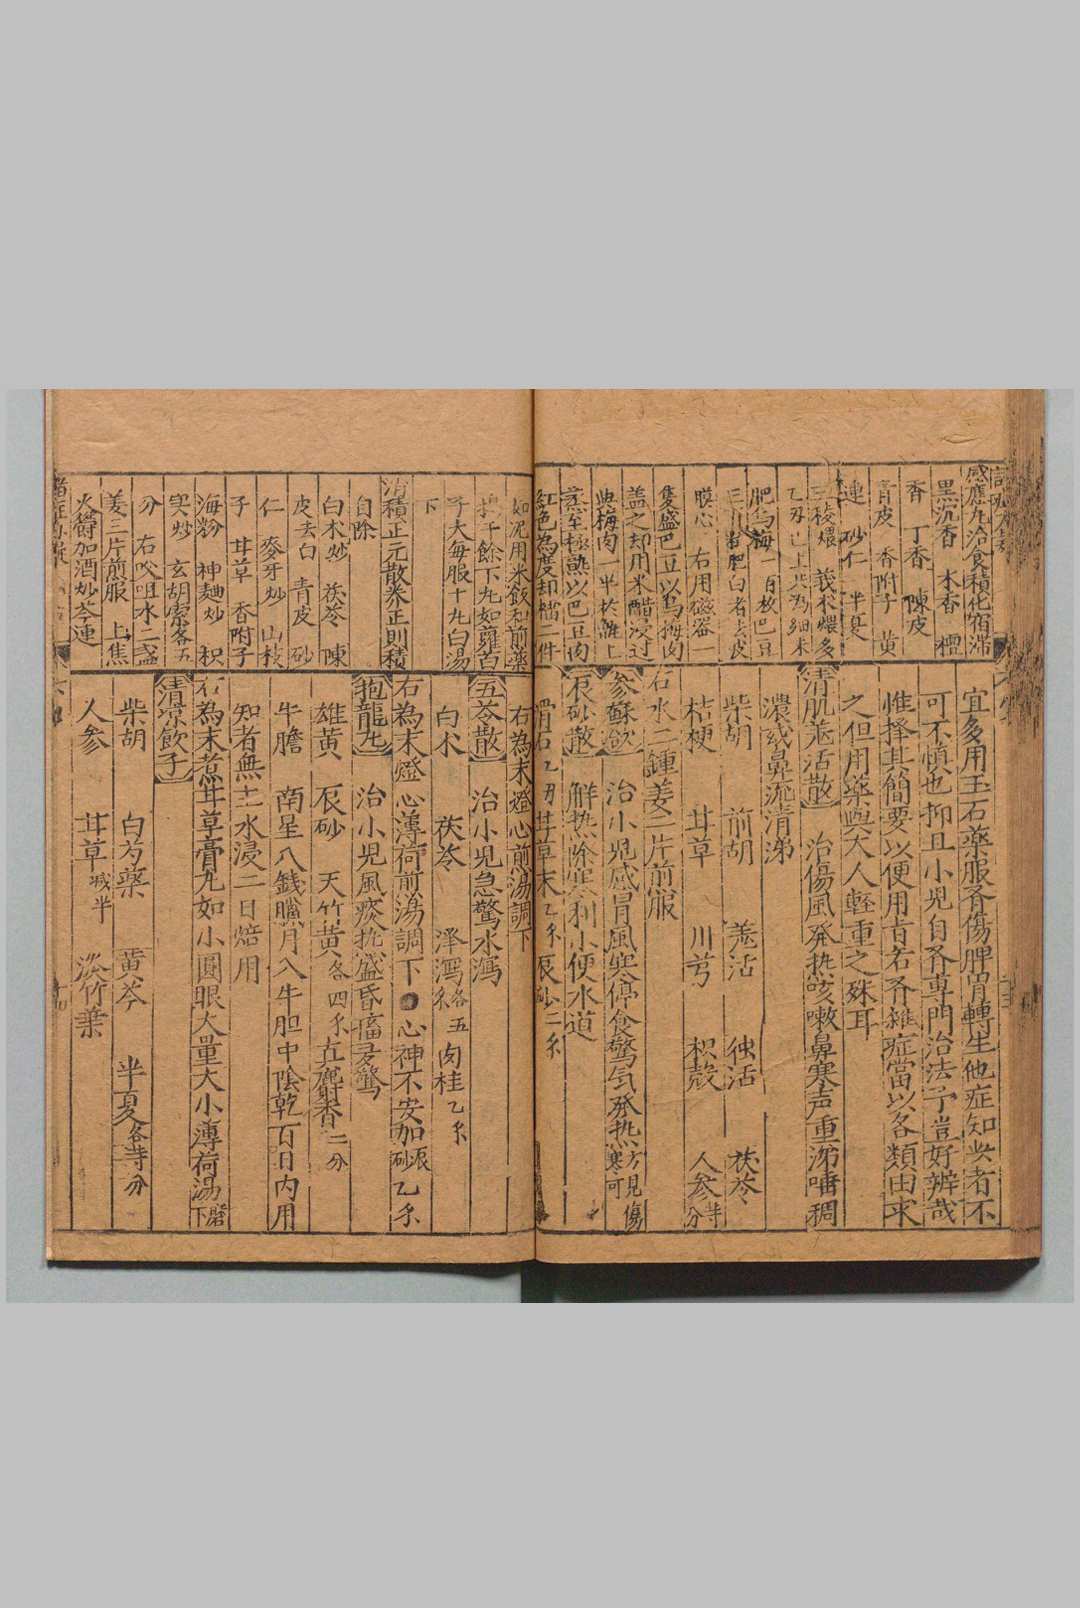 感應丸治食積化宿滯
黑沉香 木香 檀
香 丁香 陳皮
青皮 香附子 黃
連 砂仁 半夏
三稜煨 莪朮煨各
乙刄已上共為細末
肥烏梅一百枚巴豆
三百肥白者去皮
膜心 右用磁器一
隻盛巴豆以烏梅肉
盖之却用米醋浸过
與梅肉一平於甑上
蒸至極熟以巴豆肉
紅色為度却檑二件
宜多用玉石藥服斉傷脾胃轉生他症知此者不
可不慎也抑且小児自斉專門治法予豈好辨哉
惟择其簡要以便用昔若斉雜症當以各類由求
之但用藥與大人輕重之殊耳
清肌羗活散 治傷風発热咳嗽鼻塞声重涕唾稠
濃或鼻流清涕
柴胡 前胡 羗活 独活 茯苓
桔梗 甘草 川芎 枳殻 人參
右水二鍾姜三片前服
參蘇飲 治小児感冒風寒停食驚气発热
辰砂散 觧热除寒利小便水道
滑石 乙刄甘草末乙㐅辰砂二㐅
如泥用米飯和前藥
捣千餘下丸如蘿蔔
子大每服十丸白湯
下
消積正元散养正則積
自除
白朮炒 茯苓 陳
皮去白 青皮 砂
仁 麥牙炒 山枝
子 甘草 香附子
海粉 神麯炒 枳
实炒 玄胡索各五
分 右㕮咀水二盞
姜三片煎服 上焦
火欝加酒炒芩連
右為末燈心前湯調下
五苓散 治小児急驚水瀉
白朮 茯苓 泽瀉各五㐅 肉桂乙㐅
右為末燈心薄荷前湯調下 心神不安加辰砂乙㐅
抱龍丸 治小児風痰热盛昏搐受驚
雄黃 辰砂 天竹黃各四㐅 真麝香二分
牛膽 南星八錢臘月入牛胆中陰乾百日内用
知者無土水浸二日焙用
右為末煮甘草膏丸如小圓眼大量大小薄荷湯磨下
清凉飲子
柴胡 白芍藥 黃芩 半夏各等分
人參 甘草減半 淡竹葉